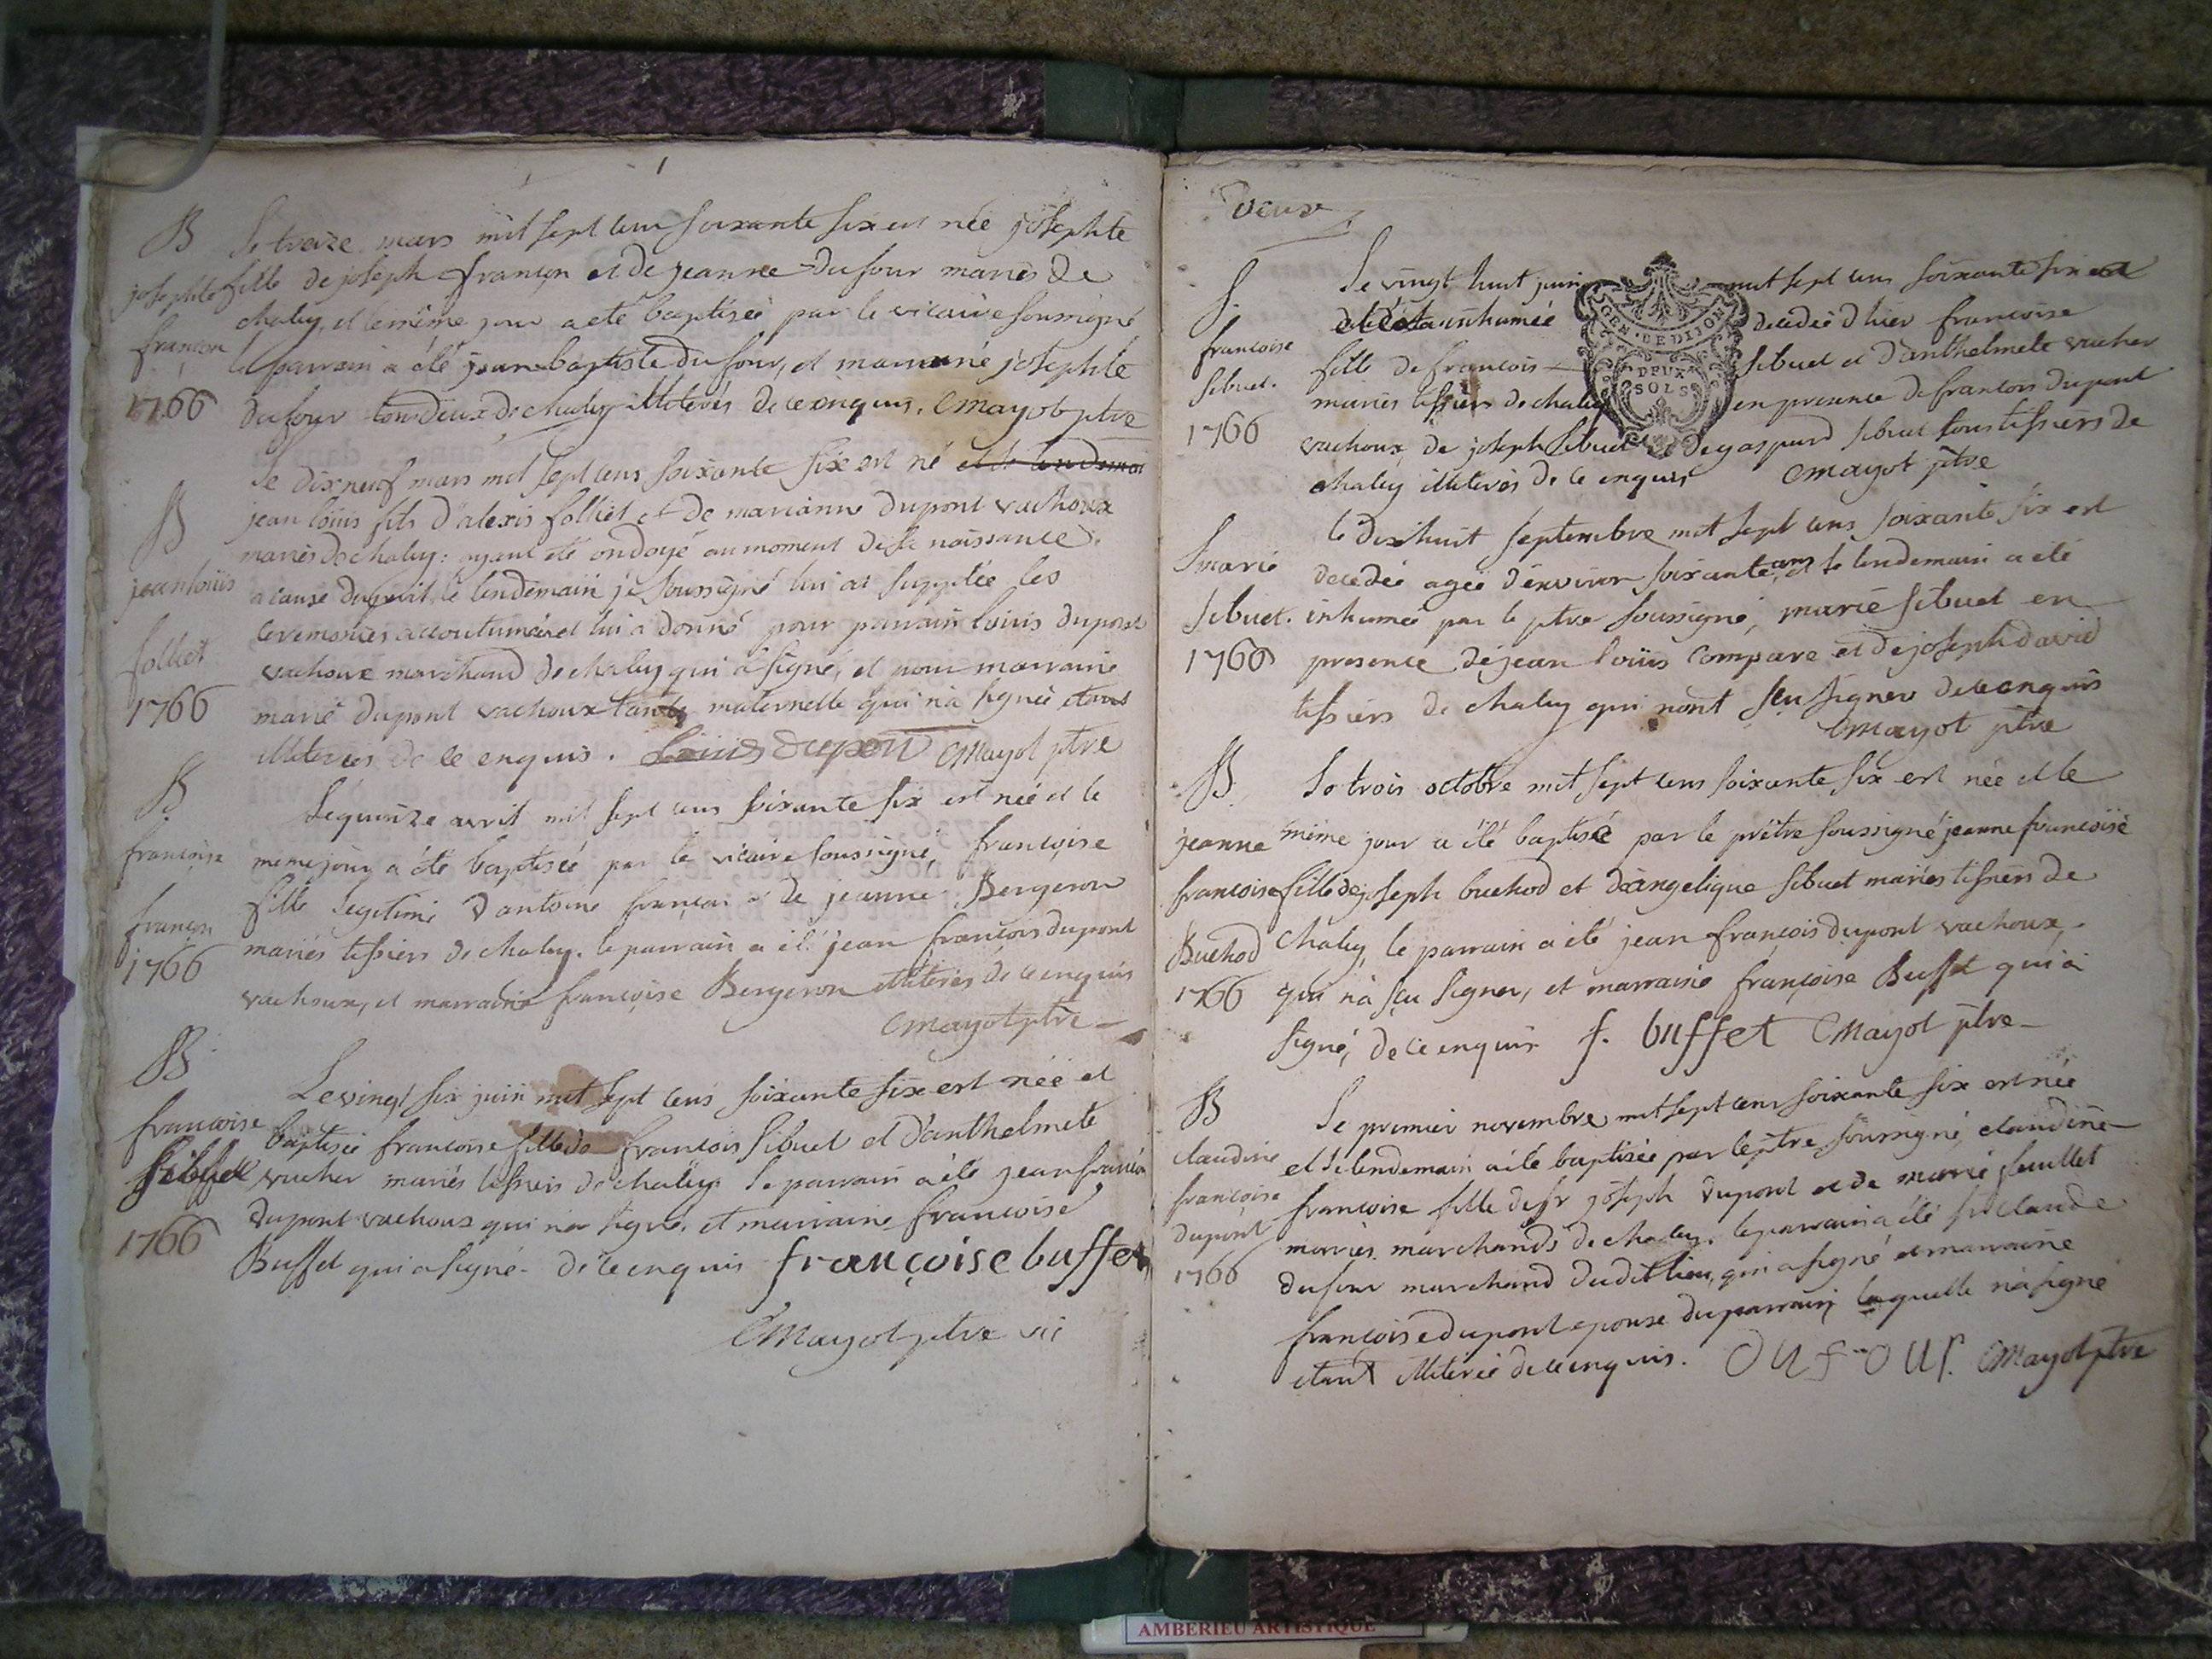 B
josephte
françon
1766
Le treize mars mil sept cens soixante six est née josephte
fille de joseph françon et de jeanne Dufour mariés de
chaley, et le même jour a eté baptisée par le vicaire soussigné
le parrain a été jean baptiste Dufour, et marraine josephte
dufour tous deux de chaley illiterés de ce enquis. CMayot ptre
B
jean loüis
folliet
1766
le dix neuf mars mil sept cens soixante six est né et le lendemai
jean loüis fils d'alexis folliet et de marianne dupont vachoux
mariés de chaley: ayant eté ondoyé au moment de sa naissance
a cause du peril, le lendemain je soussigné lui ai supplée les
ceremonies accoutumées et lui a donné pour parrain loüis dupont
vachoux marchand de chaley qui a signé, et pour marraine
marie dupont vachoux tante maternelle qui n'a signée etant
illiterées de ce enquis. Loüis dupon CMayot ptre
B
françoise
françon
1766
Le quinze avril mil sept cens soixante six est née et le
meme jour a été baptisée par le vicaire soussigné, françoise
fille legitime d'antoine françon et de jeanne Bergeron
mariés tissiers de chaley. le parrain a été jean françois dupont
vachoux, et marraine françoise Bergeron illiterés de ce enquis
CMayot ptre
B
françoise
Sibuet
1766
Le vingt six juin mil sept cens soixante six est née et
baptisée francoise fille de francois Sibuet et d'anthelmete
vucher mariés tissiers de chaley. Le parrain a été jean françois
dupont vachoux qui n'a signé, et marraine francoise
Buffet qui a signé de ce enquis françoise buffet
CMayot ptre vic
Deux
S.
francoise
Sibuet.
1766
Le vingt huit juin mil sept cens soixante six est
inhumée decedée d'hier francoise
fille de francois Sibuet et d'anthelmete vucher
mariés tissiers de chaley en presence de francois dupont
vachoux, de joseph Sibuet et de gaspard Sibuet tous tissiers de
chaley illiterés de ce enquis CMayot ptre
GEN. DE DIJON
DEUX
SOLS
S marie
Sibuet.
1766
le dix huit septembre mil sept cens soixante six est
decedée agée d'environ soixante ans, et le lendemain a été
inhumée par le ptre soussigné, marie Sibuet en
presence de jean loüis Compare et de joseph david
tissiers de chaley qui n'ont sçu signer de ce enquis
CMayot ptre
B
jeanne
francoise
Buchod
1766
Le trois octobre mil sept cens soixante six est née et le
même jour a été baptisée par le prêtre soussigné jeanne francoise
fille de joseph buchod et d'angelique Sibuet mariés tissiers de
chaley, le parrain a eté jean françois dupont vachoux,
qui n'a sçu signer, et marraine françoise Buffet qui a
signé, de ce enquis f. buffet CMayot ptre
B
claudine
françoise
dupont
1766
Le premier novembre mil sept cens soixante six est née
et le lendemain a été baptisée par le ptre soussigné, claudine
françoise fille de sr joseph dupont et de marie feuillet
mariés marchands de chaley. le parrain a été sr claude
dufour marchand dudit lieu, qui a signé et marraine
françoise dupont epouse du parrain laquelle n'a signé
etant illiterée de ce enquis. Dufour CMayot ptre
AMBERIEU ARTISTIQUE